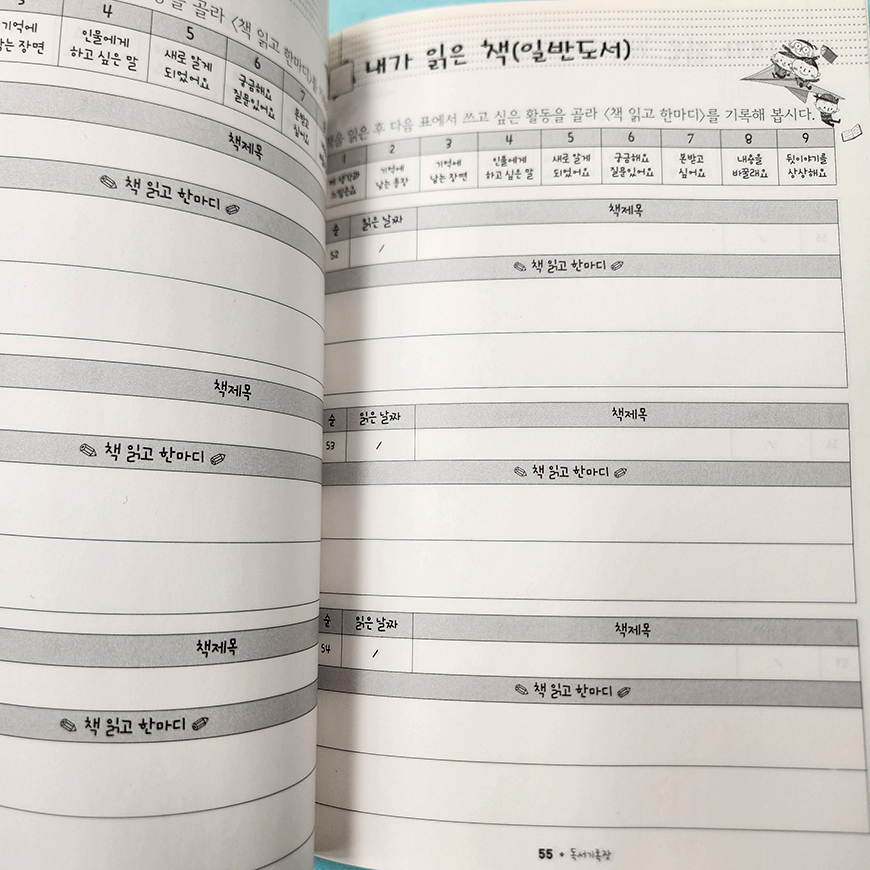 골라 〈책 읽고 한마디〉
3 4 5 6 7
기억에 인물에게 새로 알게 궁금해요 본받고
남는 장면 하고 싶은 말 되었어요 질문있어요 싶어요
책제목
책 읽고 한마디
책제목
책 읽고 한마디
책제목
책 읽고 한마디
내가 읽은 책(일반도서)
읽은 후 다음 표에서 쓰고 싶은 활동을 골라 〈책 읽고 한마디〉를 기록해 봅시다.
1 2 3 4 5 6 7 8 9
생각과 기억에 기억에 인물에게 새로 알게 궁금해요 본받고 내용을 뒷이야기를
느낌은요 남는 문장 남는 장면 하고 싶은 말 되었어요 질문있어요 싶어요 바꿀래요 상상해요
순 읽은 날짜 책제목
52 /
책 읽고 한마디
순 읽은 날짜 책제목
53 /
책 읽고 한마디
순 읽은 날짜 책제목
54 /
책 읽고 한마디
55 • 독서기록장